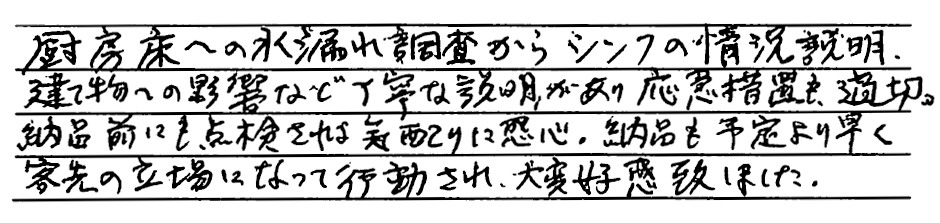 厨房床への水漏れ調査からシンクの情況説明.
建て物への影響など丁寧な説明があり応急措置も適切。
納品前にも点検され気配りに感心。納品も予定より早く
客先の立場になって行動され、大変好感致しました.